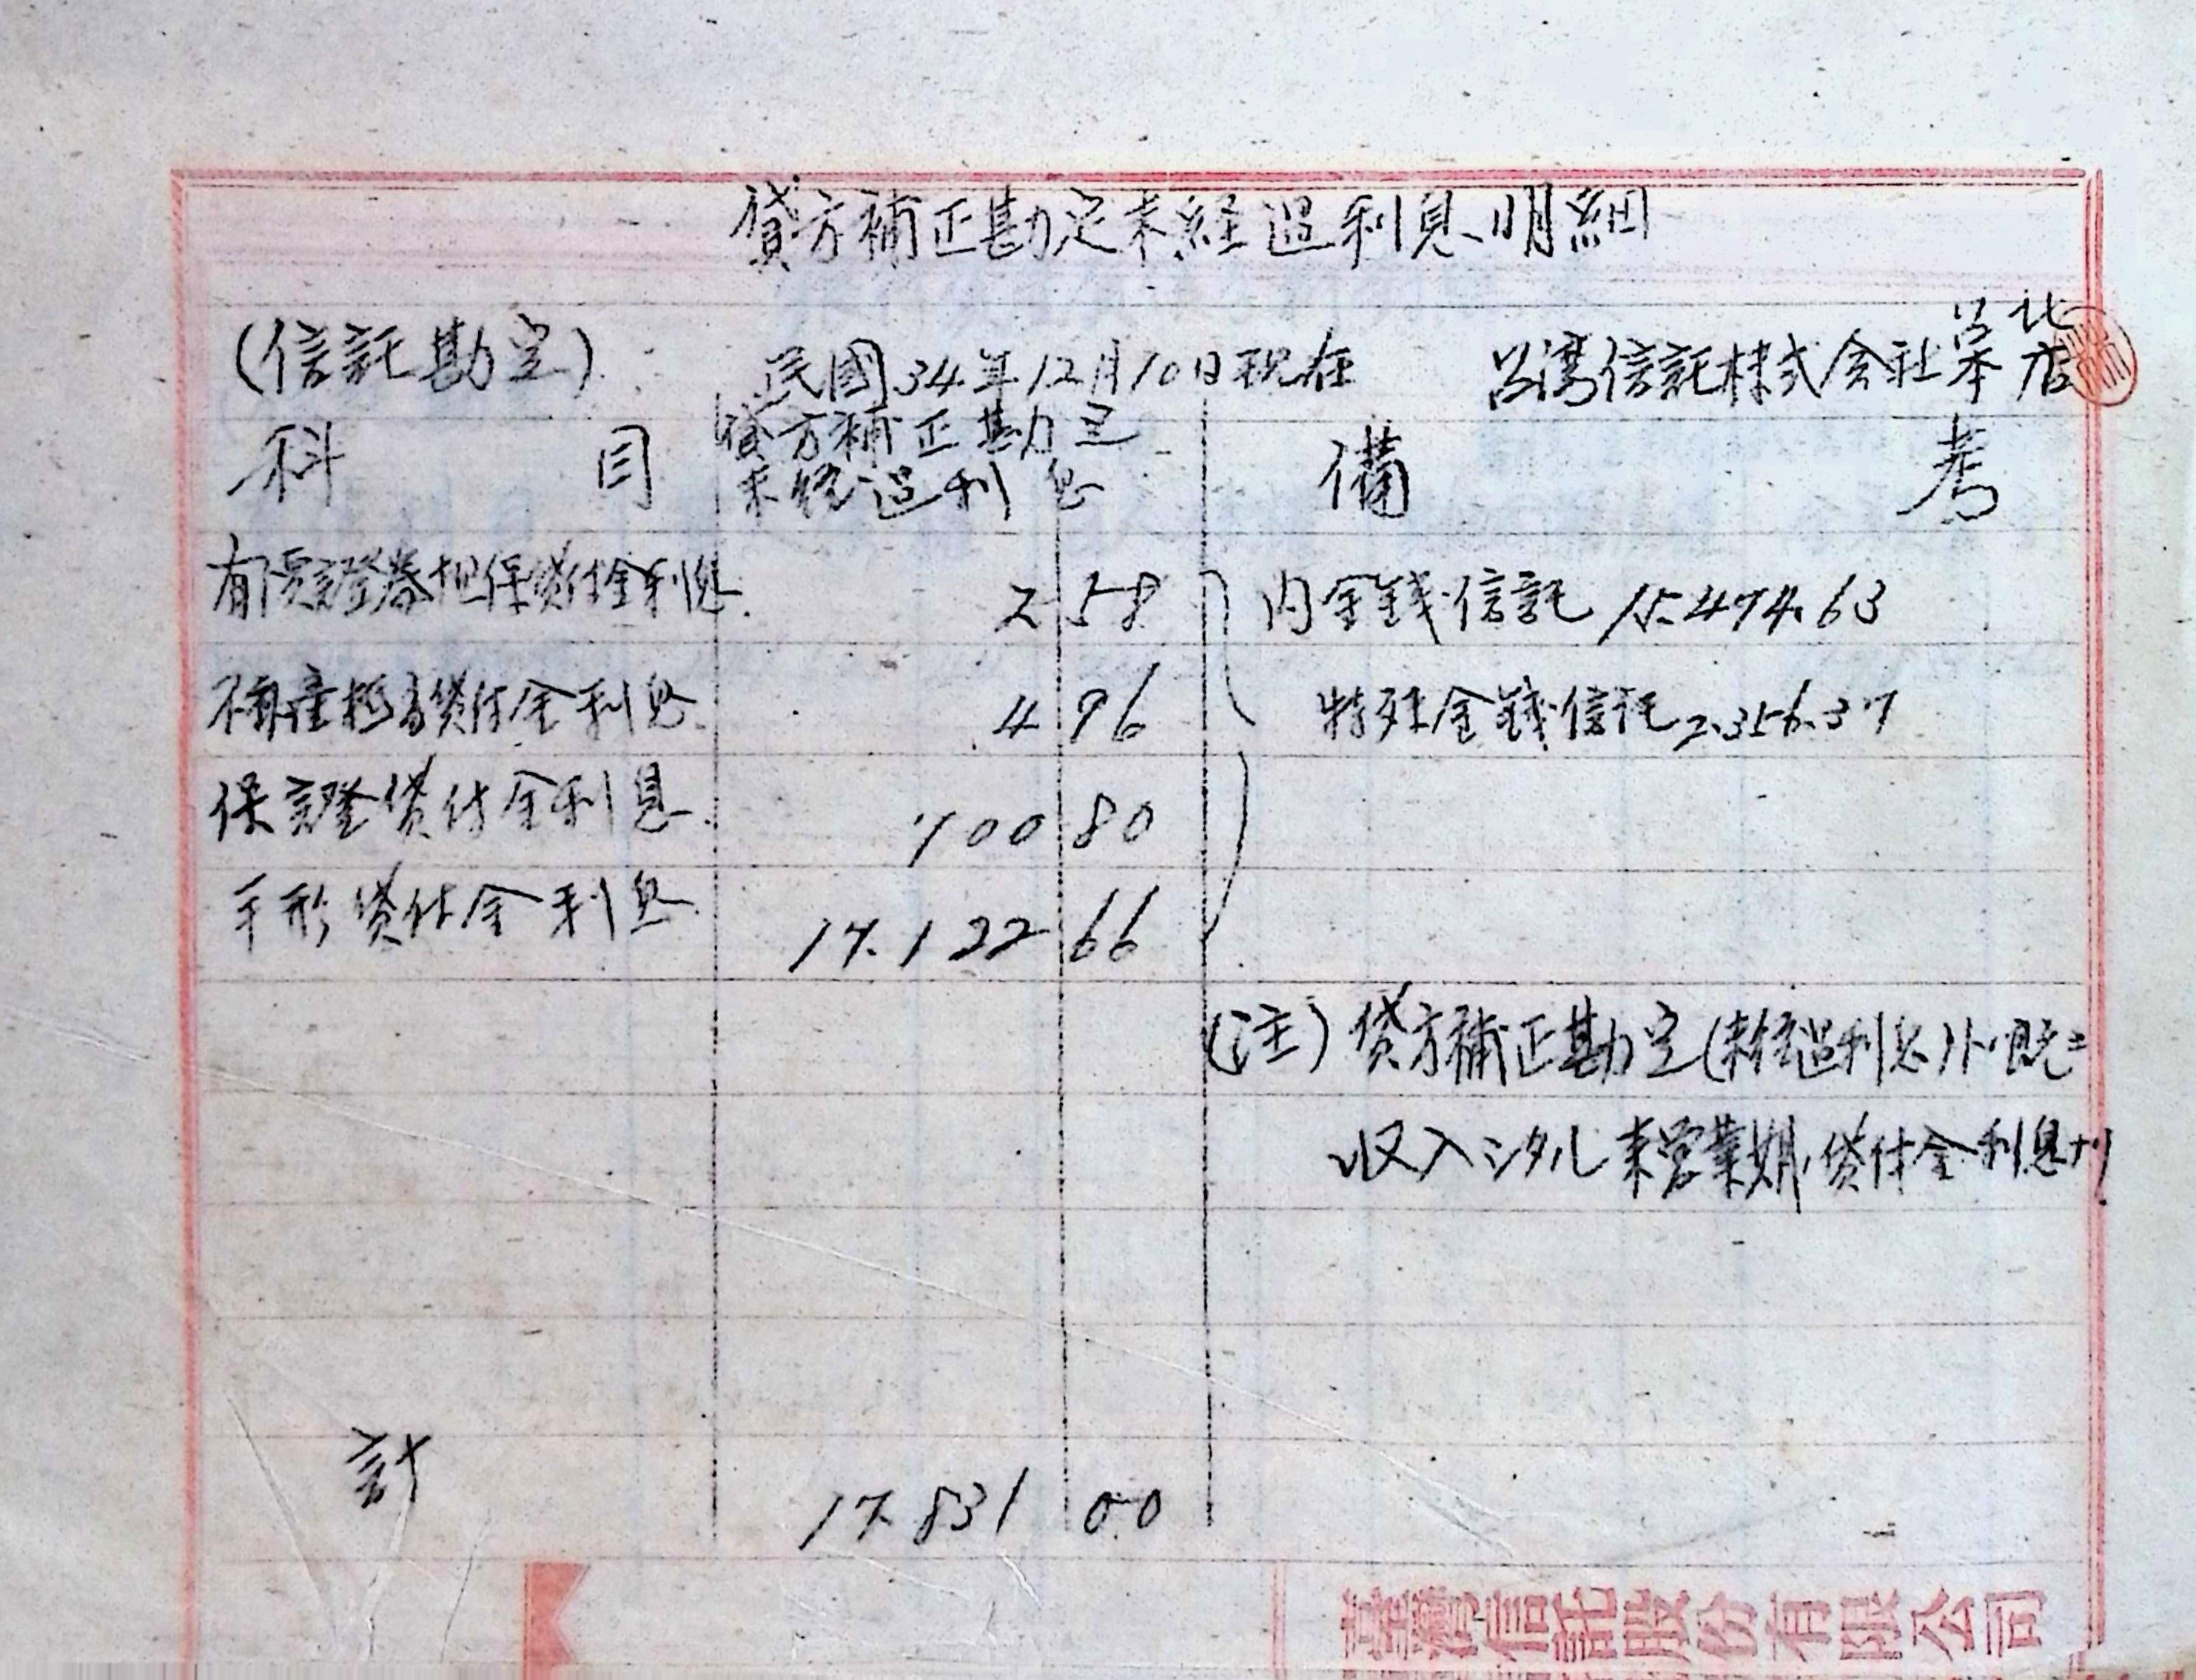 貸方補正勘定未経過利息明細
(信託勘定)
民國34年12月10日現在
台湾信託株式会社
台北
本店
科目
貸方補正勘定
未経過利息
備考
有價證券担保貸付金利息
2 58
内金銭信託 15.474.63
不動産抵当貸付金利息
4 96
特殊金銭信託 2.356.37
保證貸付金利息
700 80
手形貸付金利息
17.122 66
(注) 貸方補正勘定(未経過利息)ハ既ニ
収入シタル来営業期貸付金利息ナリ
計
17.831 00
臺灣信託股份有限公司